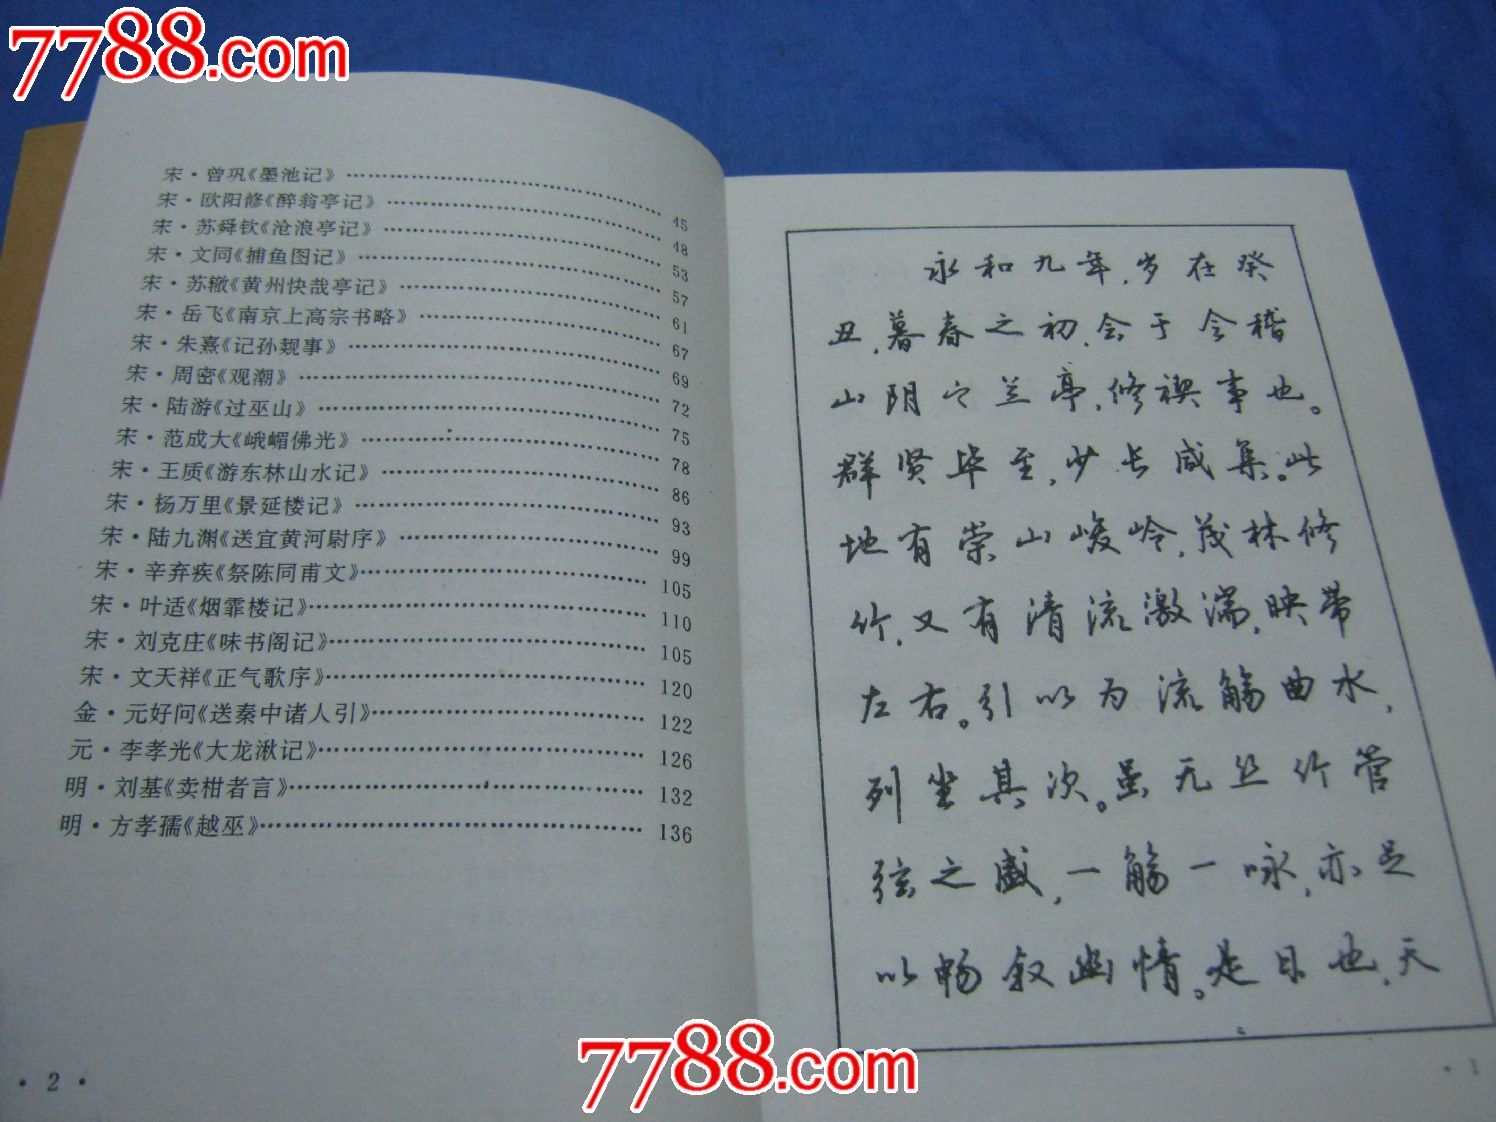 7788.com
宋·曾巩《墨池记》…………………………45
宋·欧阳修《醉翁亭记》…………………………48
宋·苏舜钦《沧浪亭记》…………………………53
宋·文同《捕鱼图记》…………………………57
宋·苏辙《黄州快哉亭记》…………………………61
宋·岳飞《南京上高宗书略》…………………………67
宋·朱熹《记孙觌事》…………………………69
宋·周密《观潮》…………………………72
宋·陆游《过巫山》…………………………75
宋·范成大《峨嵋佛光》…………………………78
宋·王质《游东林山水记》…………………………86
宋·杨万里《景延楼记》…………………………93
宋·陆九渊《送宜黄河尉序》…………………………99
宋·辛弃疾《祭陈同甫文》…………………………105
宋·叶适《烟霏楼记》…………………………110
宋·刘克庄《味书阁记》…………………………105
宋·文天祥《正气歌序》…………………………120
金·元好问《送秦中诸人引》…………………………122
元·李孝光《大龙湫记》…………………………126
明·刘基《卖柑者言》…………………………132
明·方孝孺《越巫》…………………………136
·2·
永和九年,岁在癸
丑,暮春之初,会于会稽
山阴之兰亭,修禊事也。
群贤毕至,少长咸集。此
地有崇山峻岭,茂林修
竹,又有清流激湍,映带
左右。引以为流觞曲水,
列坐其次。虽无丝竹管
弦之盛,一觞一咏,亦足
以畅叙幽情。是日也,天
·1
7788.com